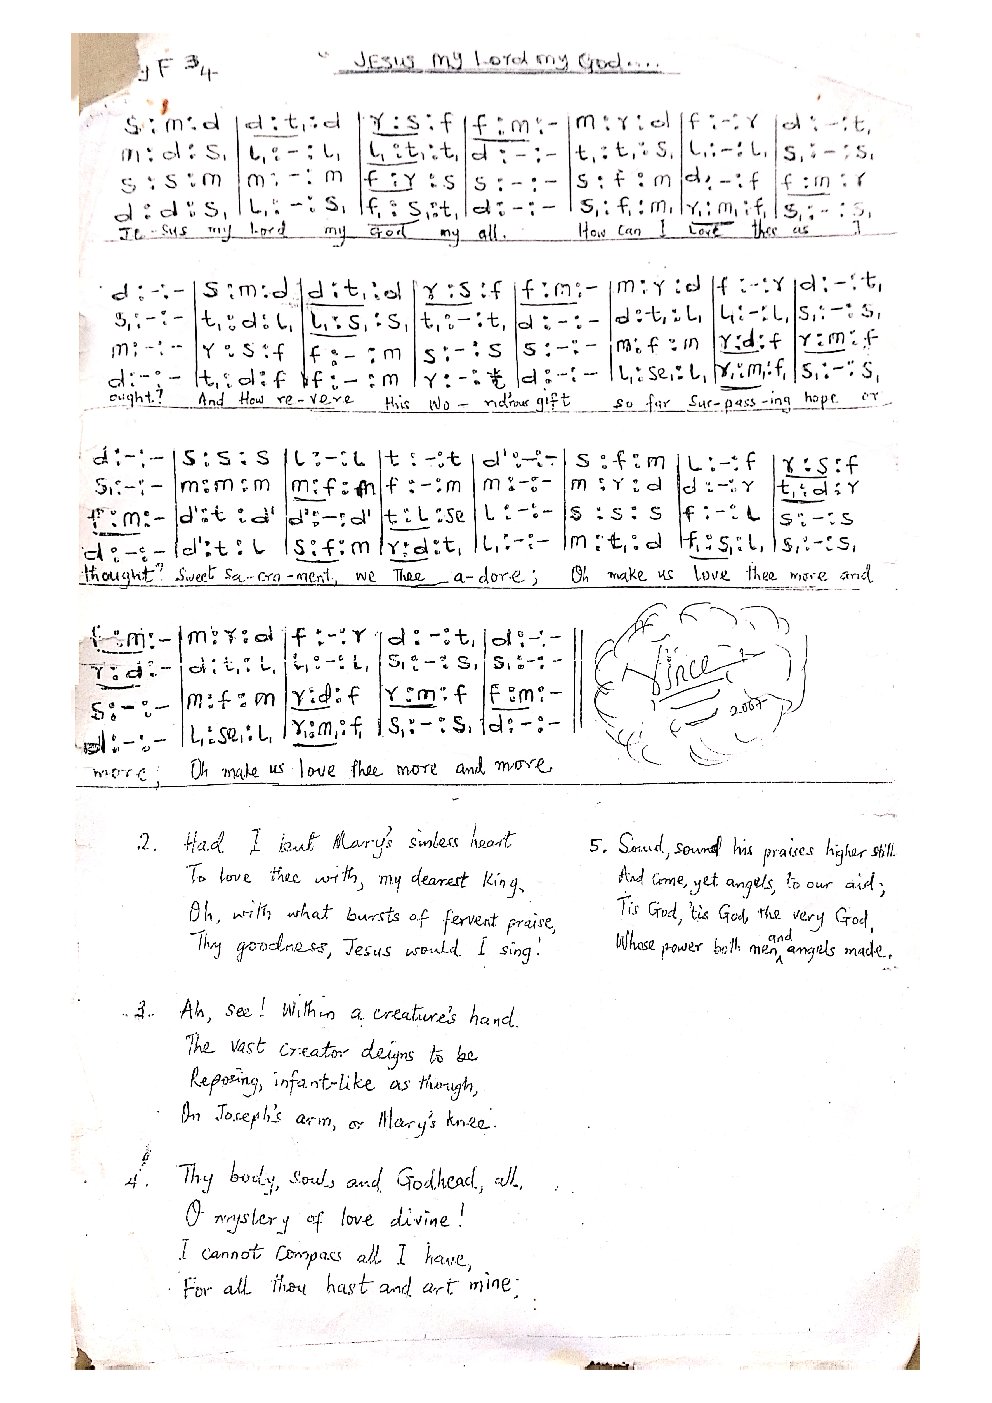 F 3/4
" JESUS My Lord my God....
s : m : d | d : t, : d | r : s : f | f : m : - | m : r : d | f : - : r | d : - : t,
m : d : s, | l, : - : l, | l, : t, : t, | d : - : - | t, : t, : s, | l, : - : l, | s, : - : s,
s : s : m | m : - : m | f : r : s | s : - : - | s : f : m | d' : - : f | f : m : r
d : d : s, | l, : - : s, | f, : s, : t, | d : - : - | s, : f, : m, | r, : m, : f, | s, : - : s,
Je-sus my Lord my God my all. How can I Love thee as I
d : - : - | s : m : d | d : t, : d | r : s : f | f : m : - | m : r : d | f : - : r | d : - : t,
s, : - : - | t, : d : l, | l, : s, : s, | t, : - : t, | d : - : - | d : t, : l, | l, : - : l, | s, : - : s,
m : - : - | r : s : f | f : - : m | s : - : s | s : - : - | m : f : m | r : d : f | r : m : f
d : - : - | t, : d : f | f : - : m | r : - : | d : - : - | l, : se, : l, | r, : m, : f, | s, : - : s,
ought? And How re-vere this wo-ndrous gift so far sur-pass-ing hope or
d : - : - | s : s : s | l : - : l | t : - : t | d' : - : - | s : f : m | l : - : f | r : s : f
s, : - : - | m : m : m | m : f : m | f : - : m | m : - : - | m : r : d | d : - : r | t, : d : r
f : m : - | d' : t : d' | d' : - : d' | t : l : se | l : - : - | s : s : s | f : - : l | s : - : s
d : - : - | d' : t : l | s : f : m | r : d : t, | l, : - : - | m : t, : d | f, : s, : l, | s, : - : s,
thought? Sweet Sa-cra-ment, we Thee a-dore; Oh make us love thee more and
f : m : - | m : r : d | f : - : r | d : - : t, | d : - : -
r : d : - | d : t, : l, | l, : - : l, | s, : - : s, | s, : - : -
s : - : - | m : f : m | r : d : f | r : m : f | f : m : -
d : - : - | l, : se, : l, | r, : m, : f, | s, : - : s, | d : - : -
more; Oh make us love thee more and more
Vince
2007
2. Had I but Mary's sinless heart
To love thee with, my dearest King,
Oh, with what bursts of fervent praise,
Thy goodness, Jesus would I sing!
5. Sound, sound his praises higher still.
And come, yet angels, to our aid;
Tis God, 'tis God, the very God,
Whose power both men and angels made.
3. Ah, see! Within a creature's hand.
The vast Creator deigns to be
Reposing, infant-like as though,
On Joseph's arm, or Mary's knee.
4. Thy body, souls and Godhead, all,
O mystery of love divine!
I cannot compass all I have,
For all thou hast and art mine;